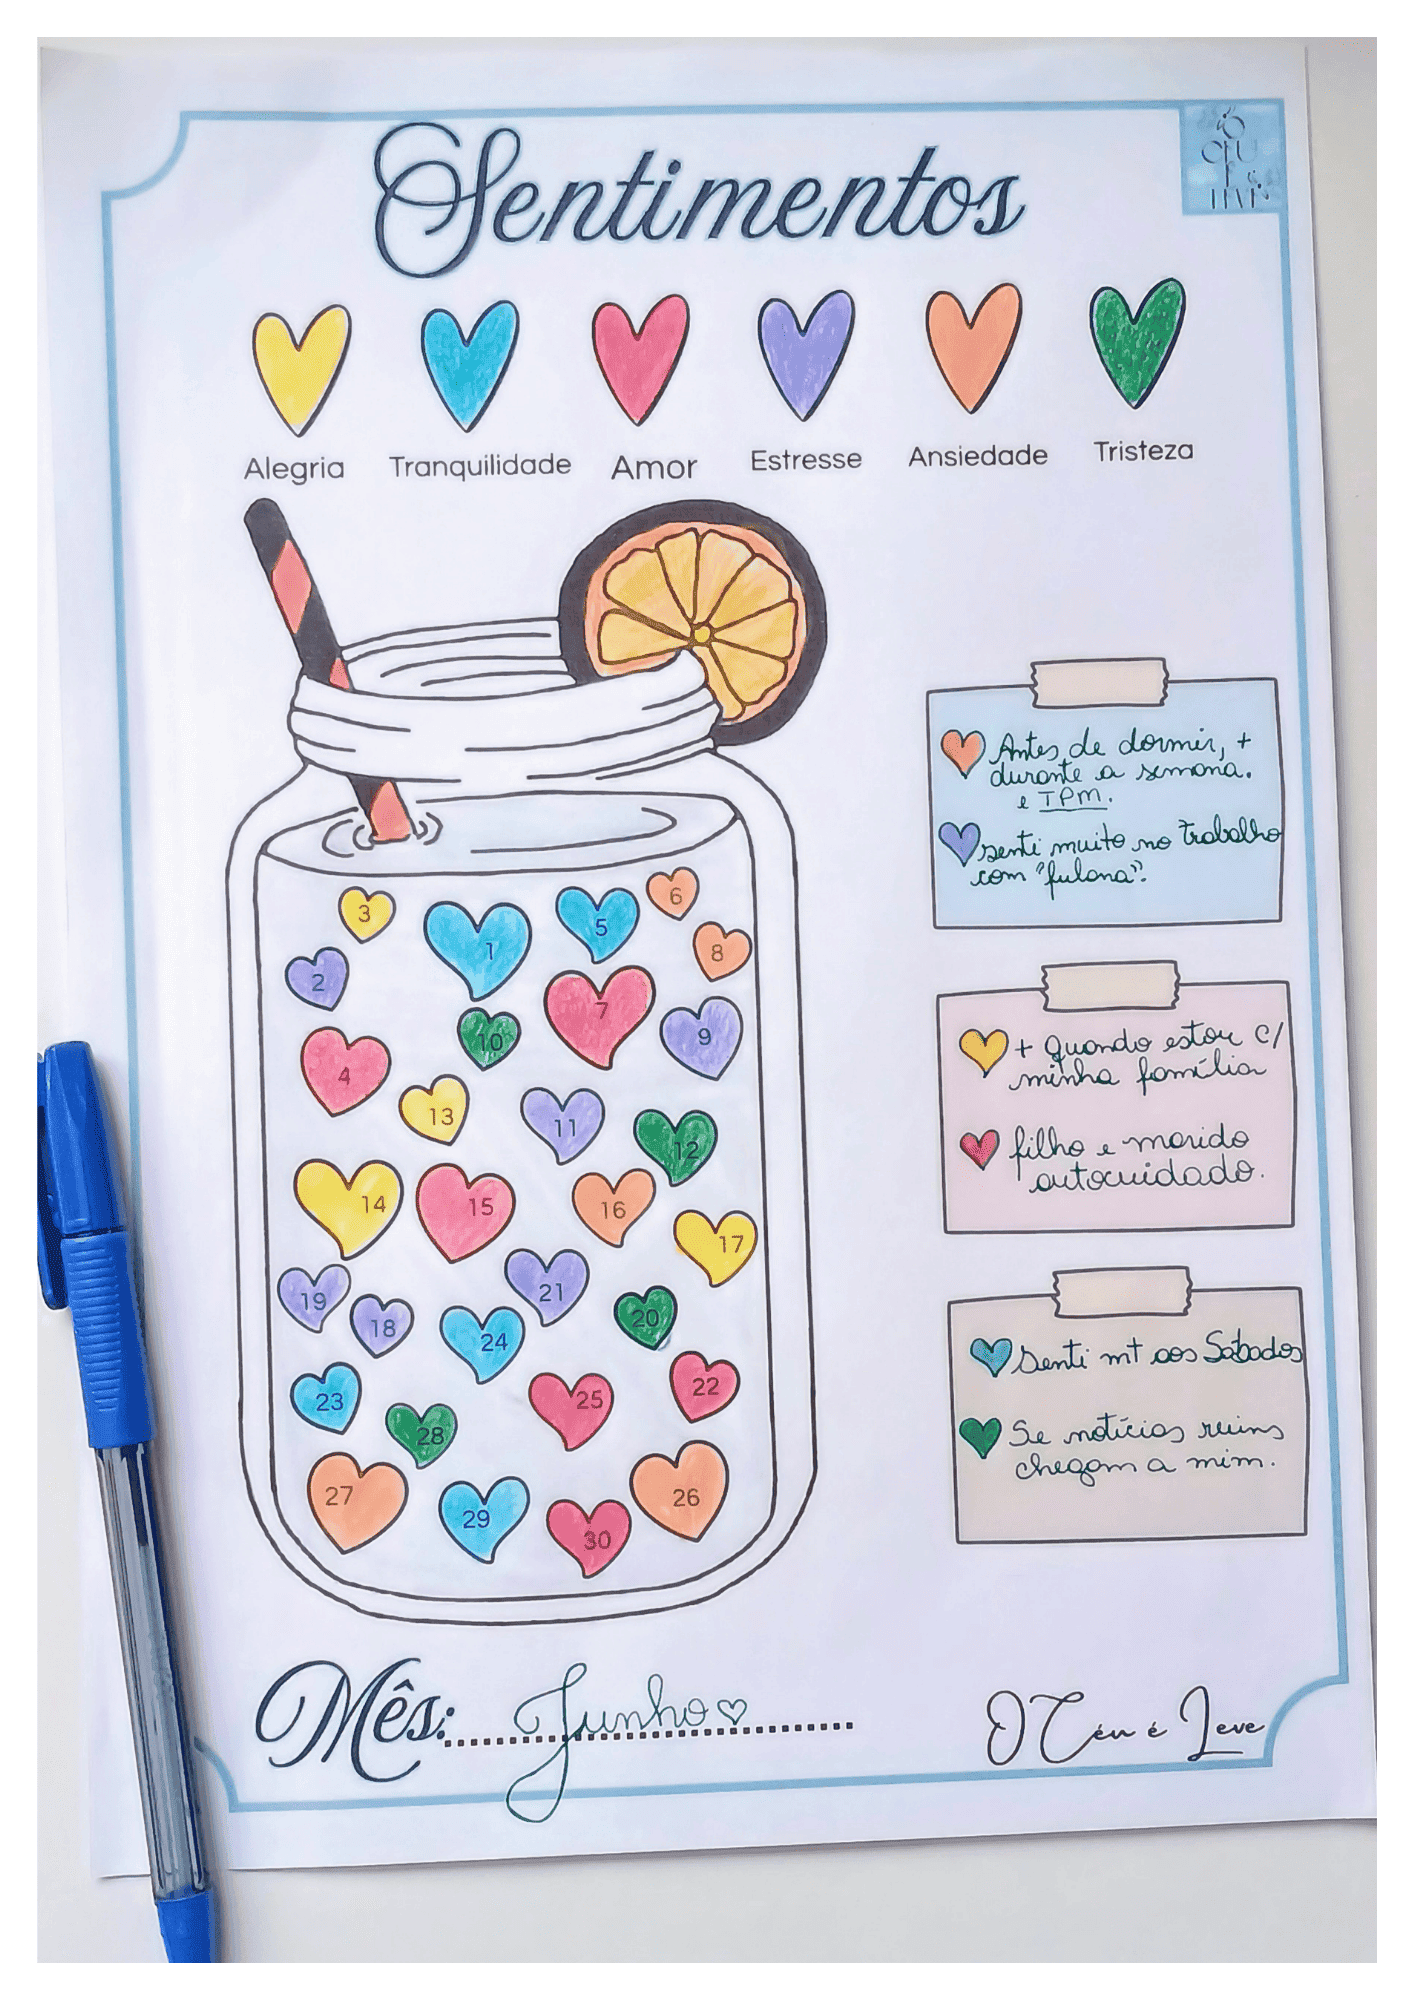 Sentimentos
Alegria Tranquilidade Amor Estresse Ansiedade Tristeza
3 1 5 6
2 8
10 7 9
4
13 11 12
14 15 16 17
19 18 21 20
24
23 25 22
28
27 29 30 26
Antes de dormir, +
durante a semana.
e TPM.
senti muito no trabalho
com "fulana".
+ quando estou c/
minha família
filho e marido
autocuidado.
Senti mt aos Sábados
Se notícias ruins
chegam a mim.
Mês: Junho
O Céu é Leve